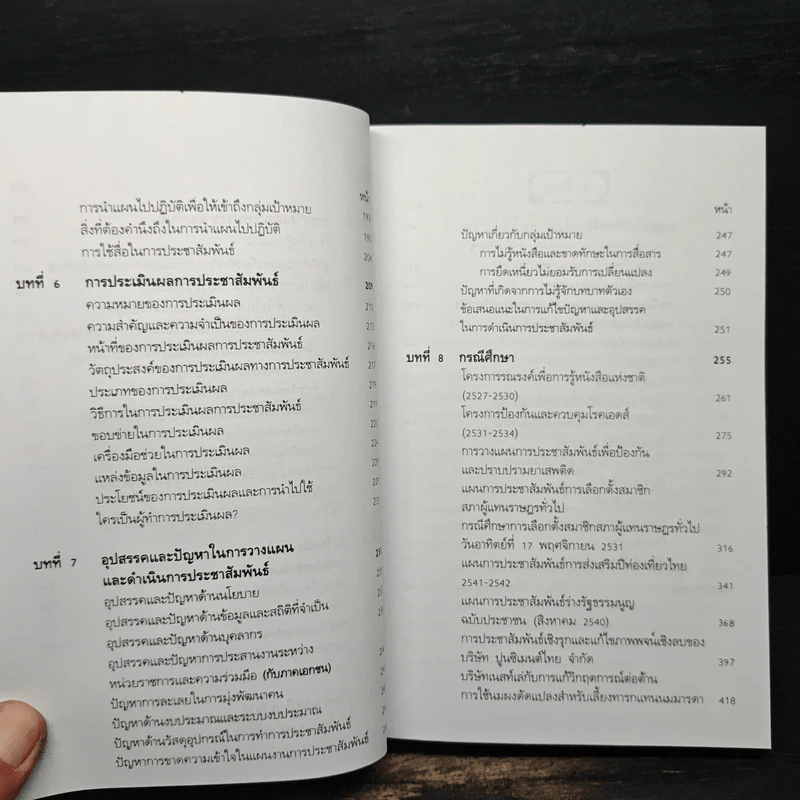 หน้า
การนำแผนไปปฏิบัติเพื่อให้เข้าถึงกลุ่มเป้าหมาย 193
สิ่งที่ต้องคำนึงถึงในการนำแผนไปปฏิบัติ 195
การใช้สื่อในการประชาสัมพันธ์ 204
บทที่ 6 การประเมินผลการประชาสัมพันธ์ 209
ความหมายของการประเมินผล 210
ความสำคัญและความจำเป็นของการประเมินผล 213
หน้าที่ของการประเมินผลการประชาสัมพันธ์ 216
วัตถุประสงค์ของการประเมินผลทางการประชาสัมพันธ์ 217
ประเภทของการประเมินผล 219
วิธีการในการประเมินผลการประชาสัมพันธ์ 221
ขอบข่ายในการประเมินผล
เครื่องมือช่วยในการประเมินผล
แหล่งข้อมูลในการประเมินผล
ประโยชน์ของการประเมินผลและการนำไปใช้
ใครเป็นผู้ทำการประเมินผล?
บทที่ 7 อุปสรรคและปัญหาในการวางแผน
และดำเนินการประชาสัมพันธ์
อุปสรรคและปัญหาด้านนโยบาย
อุปสรรคและปัญหาด้านข้อมูลและสถิติที่จำเป็น
อุปสรรคและปัญหาด้านบุคลากร
อุปสรรคและปัญหาการประสานงานระหว่าง
หน่วยราชการและความร่วมมือ (กับภาคเอกชน)
ปัญหาการละเลยในการมุ่งพัฒนาคน
ปัญหาด้านงบประมาณและระบบงบประมาณ
ปัญหาด้านวัสดุอุปกรณ์ในการทำการประชาสัมพันธ์
ปัญหาการขาดความเข้าใจในแผนงานการประชาสัมพันธ์
หน้า
ปัญหาเกี่ยวกับกลุ่มเป้าหมาย 247
การไม่รู้หนังสือและขาดทักษะในการสื่อสาร 247
การยึดเหนี่ยวไม่ยอมรับการเปลี่ยนแปลง 249
ปัญหาที่เกิดจากการไม่รู้จักบทบาทตัวเอง 250
ข้อเสนอแนะในการแก้ไขปัญหาและอุปสรรค
ในการดำเนินการประชาสัมพันธ์ 251
บทที่ 8 กรณีศึกษา 255
โครงการรณรงค์เพื่อการรู้หนังสือแห่งชาติ
(2527-2530) 261
โครงการป้องกันและควบคุมโรคเอดส์
(2531-2534) 275
การวางแผนการประชาสัมพันธ์เพื่อป้องกัน
และปราบปรามยาเสพติด 292
แผนการประชาสัมพันธ์การเลือกตั้งสมาชิก
สภาผู้แทนราษฎรทั่วไป
กรณีศึกษาการเลือกตั้งสมาชิกสภาผู้แทนราษฎรทั่วไป
วันอาทิตย์ที่ 17 พฤศจิกายน 2531 316
แผนการประชาสัมพันธ์การส่งเสริมปีท่องเที่ยวไทย
2541-2542 341
แผนการประชาสัมพันธ์ร่างรัฐธรรมนูญ
ฉบับประชาชน (สิงหาคม 2540) 368
การประชาสัมพันธ์เชิงรุกและแก้ไขภาพพจน์เชิงลบของ
บริษัท ปูนซิเมนต์ไทย จำกัด 397
บริษัทเนสท์เล่กับการแก้วิกฤตการณ์ต่อต้าน
การใช้นมผงดัดแปลงสำหรับเลี้ยงทารกแทนนมมารดา 418